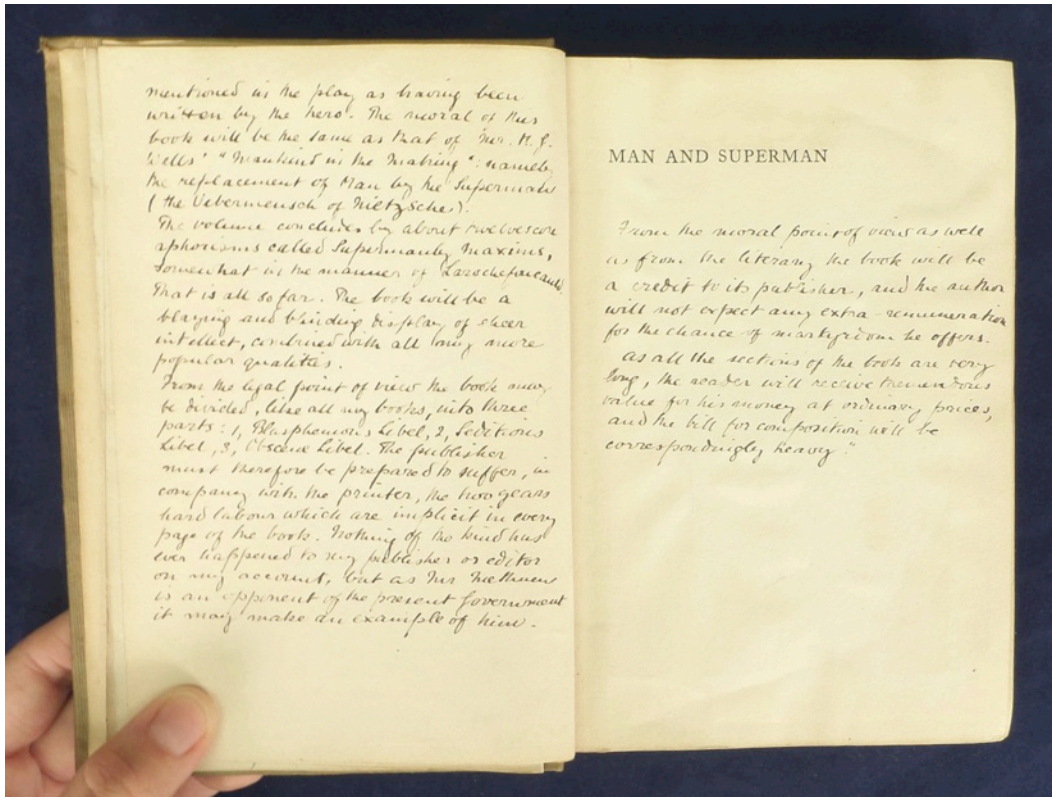 mentioned in the play as having been
written by the hero. The moral of this
book will be the same as that of Mr. H. G.
Wells' "Mankind in the Making": namely
the replacement of Man by the Superman
(the Uebermensch of Nietzsche).
The volume concludes by about twelvescore
aphorisms called Supermanly Maxims,
somewhat in the manner of Larochefoucauld.
That is all so far. The book will be a
blazing and blinding display of sheer
intellect, combined with all my more
popular qualities.
From the legal point of view the book may
be divided, like all my books, into three
parts: 1, Blasphemous Libel, 2, Seditious
Libel, 3, Obscene Libel. The publisher
must therefore be prepared to suffer, in
company with the printer, the two years
hard labour which are implicit in every
page of the book. Nothing of the kind has
ever happened to my publisher or editor
on my account, but as Mr Methuen
is an opponent of the present Government
it may make an example of him.
MAN AND SUPERMAN
From the moral point of view as well
as from the literary the book will be
a credit to its publisher, and the author
will not expect any extra-remuneration
for the chance of martyrdom he offers.
As all the sections of the book are very
long, the reader will receive tremendous
value for his money at ordinary prices,
and the bill for composition will be
correspondingly heavy."